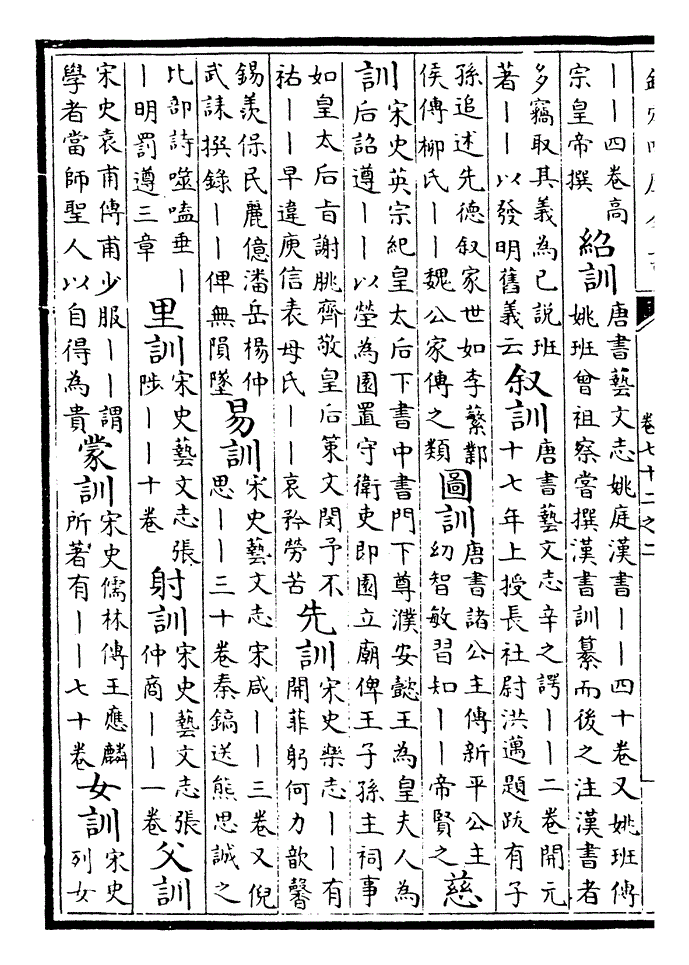 卷七十二之二
——四卷高
宗皇帝撰
紹訓
唐書藝文志姚庭漢書——四十卷又姚班傳
姚班曾祖察嘗撰漢書訓纂而後之注漢書者
多竊取其義為已說班
著——以發明舊義云
叙訓
唐書藝文志辛之諤——二卷開元
十七年上授長社尉洪邁題跋有子
孫追述先德叙家世如李蘩鄴
侯傳柳氏——魏公家傳之類
圖訓
唐書諸公主傳新平公主
幼智敏習知——帝賢之
慈
訓
宋史英宗紀皇太后下書中書門下尊濮安懿王為皇夫人為
后詔遵——以塋為園置守衛吏即園立廟俾王子孫主祠事
如皇太后旨謝朓齊敬皇后策文閔予不
祐——早違庾信表母氏——哀矜勞苦
先訓
宋史樂志——有
開菲躬何力歆馨
錫羨保民麗億潘岳楊仲
武誄撰錄——俾無隕墜
易訓
宋史藝文志宋咸——三卷又倪
思——三十卷秦鎬送熊思誠之
比部詩噬嗑垂—
—明罰遵三章
里訓
宋史藝文志張
陟——十卷
射訓
宋史藝文志張
仲商——一卷
父訓
宋史袁甫傳甫少服——謂
學者當師聖人以自得為貴
蒙訓
宋史儒林傳王應麟
所著有——七十卷
女訓
宋史
列女